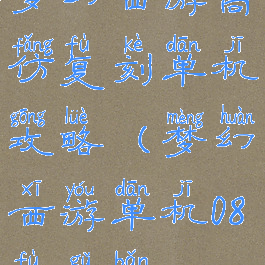 西游高
fǎng fù kè dān jī
仿复刻单机
gōng lüè mèng huàn
攻略（梦幻
xī yóu dān jī
西游单机08
fù gǔ bǎn